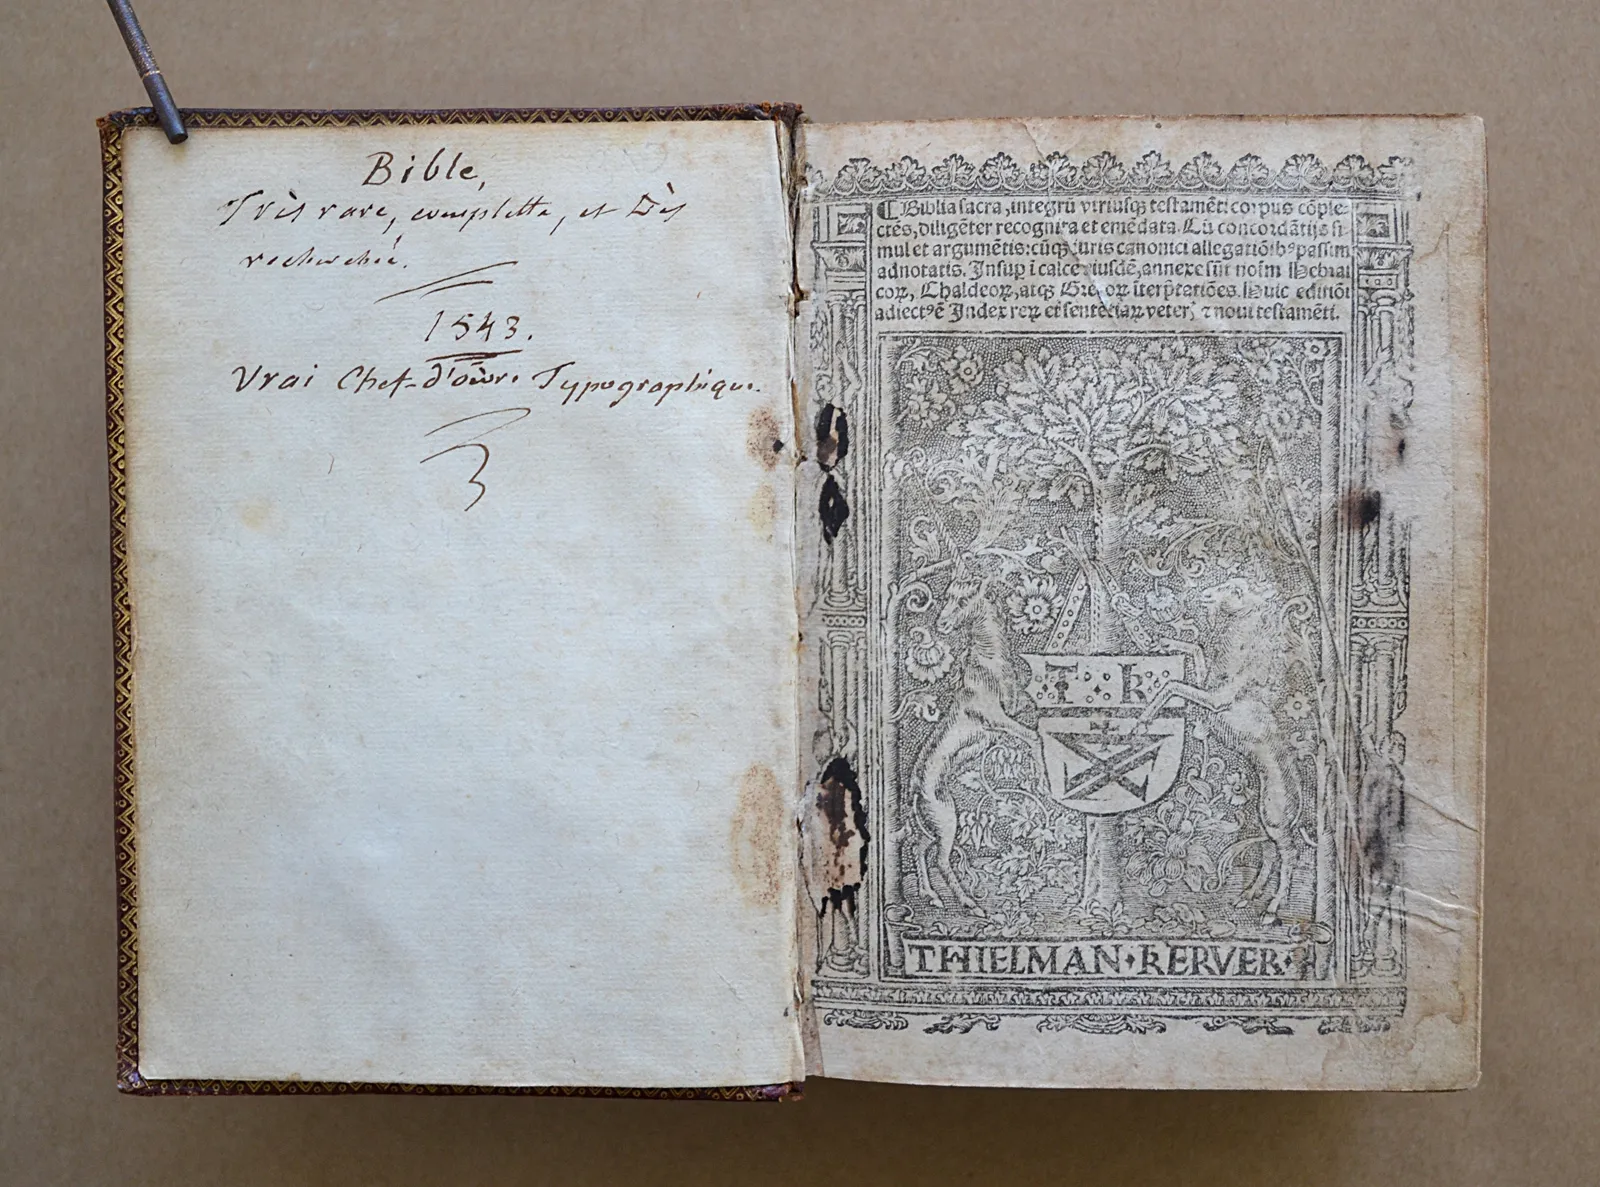 Bible,
Très rare, complette, et Dès
recherchée.
1543.
Vrai Chef-d'oèvre Typographique.
⸿ Biblia sacra, integrū vtriusqꝫ testamēti corpus cōple-
ctēs, diligēter recognita et emēdata. Cū concordātijs si-
mul et argumētis: cūqꝫ iuris canonici allegatiōibꝰ passim
adnotatis. Insuꝑ ī calce eiusdē, annexe sūt noīm Hebrai
coꝝ, Chaldeoꝝ, atqꝫ Grecoꝝ īterp̄tatiōes. Huic editiōi
adiectꝰ ē Index reꝝ et sentētiaꝝ veter, ⁊ noui testamēti.
T K
THIELMAN·KERVER·